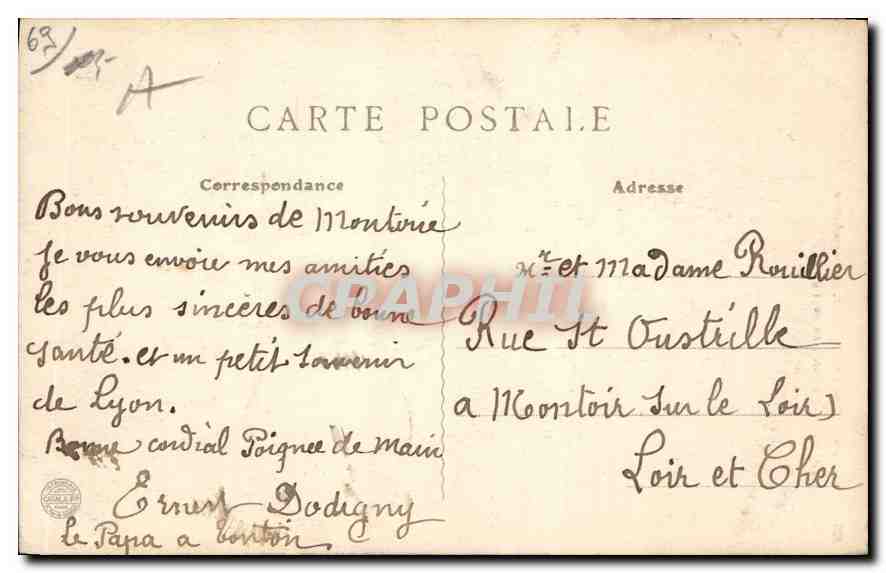 69
A
CARTE POSTALE
Correspondance
Bons souvenirs de Montorie
Je vous envoie mes amitiés
les plus sincères de bonne
santé. et un petit souvenir
de Lyon.
Bonne cordial Poignee de main
Ernest Dodigny
le Papa a tonton
Adresse
Mr et Madame Rouillier
Rue St Oustrille
a Montoir sur le Loir
Loir et Cher
CPAPHIL